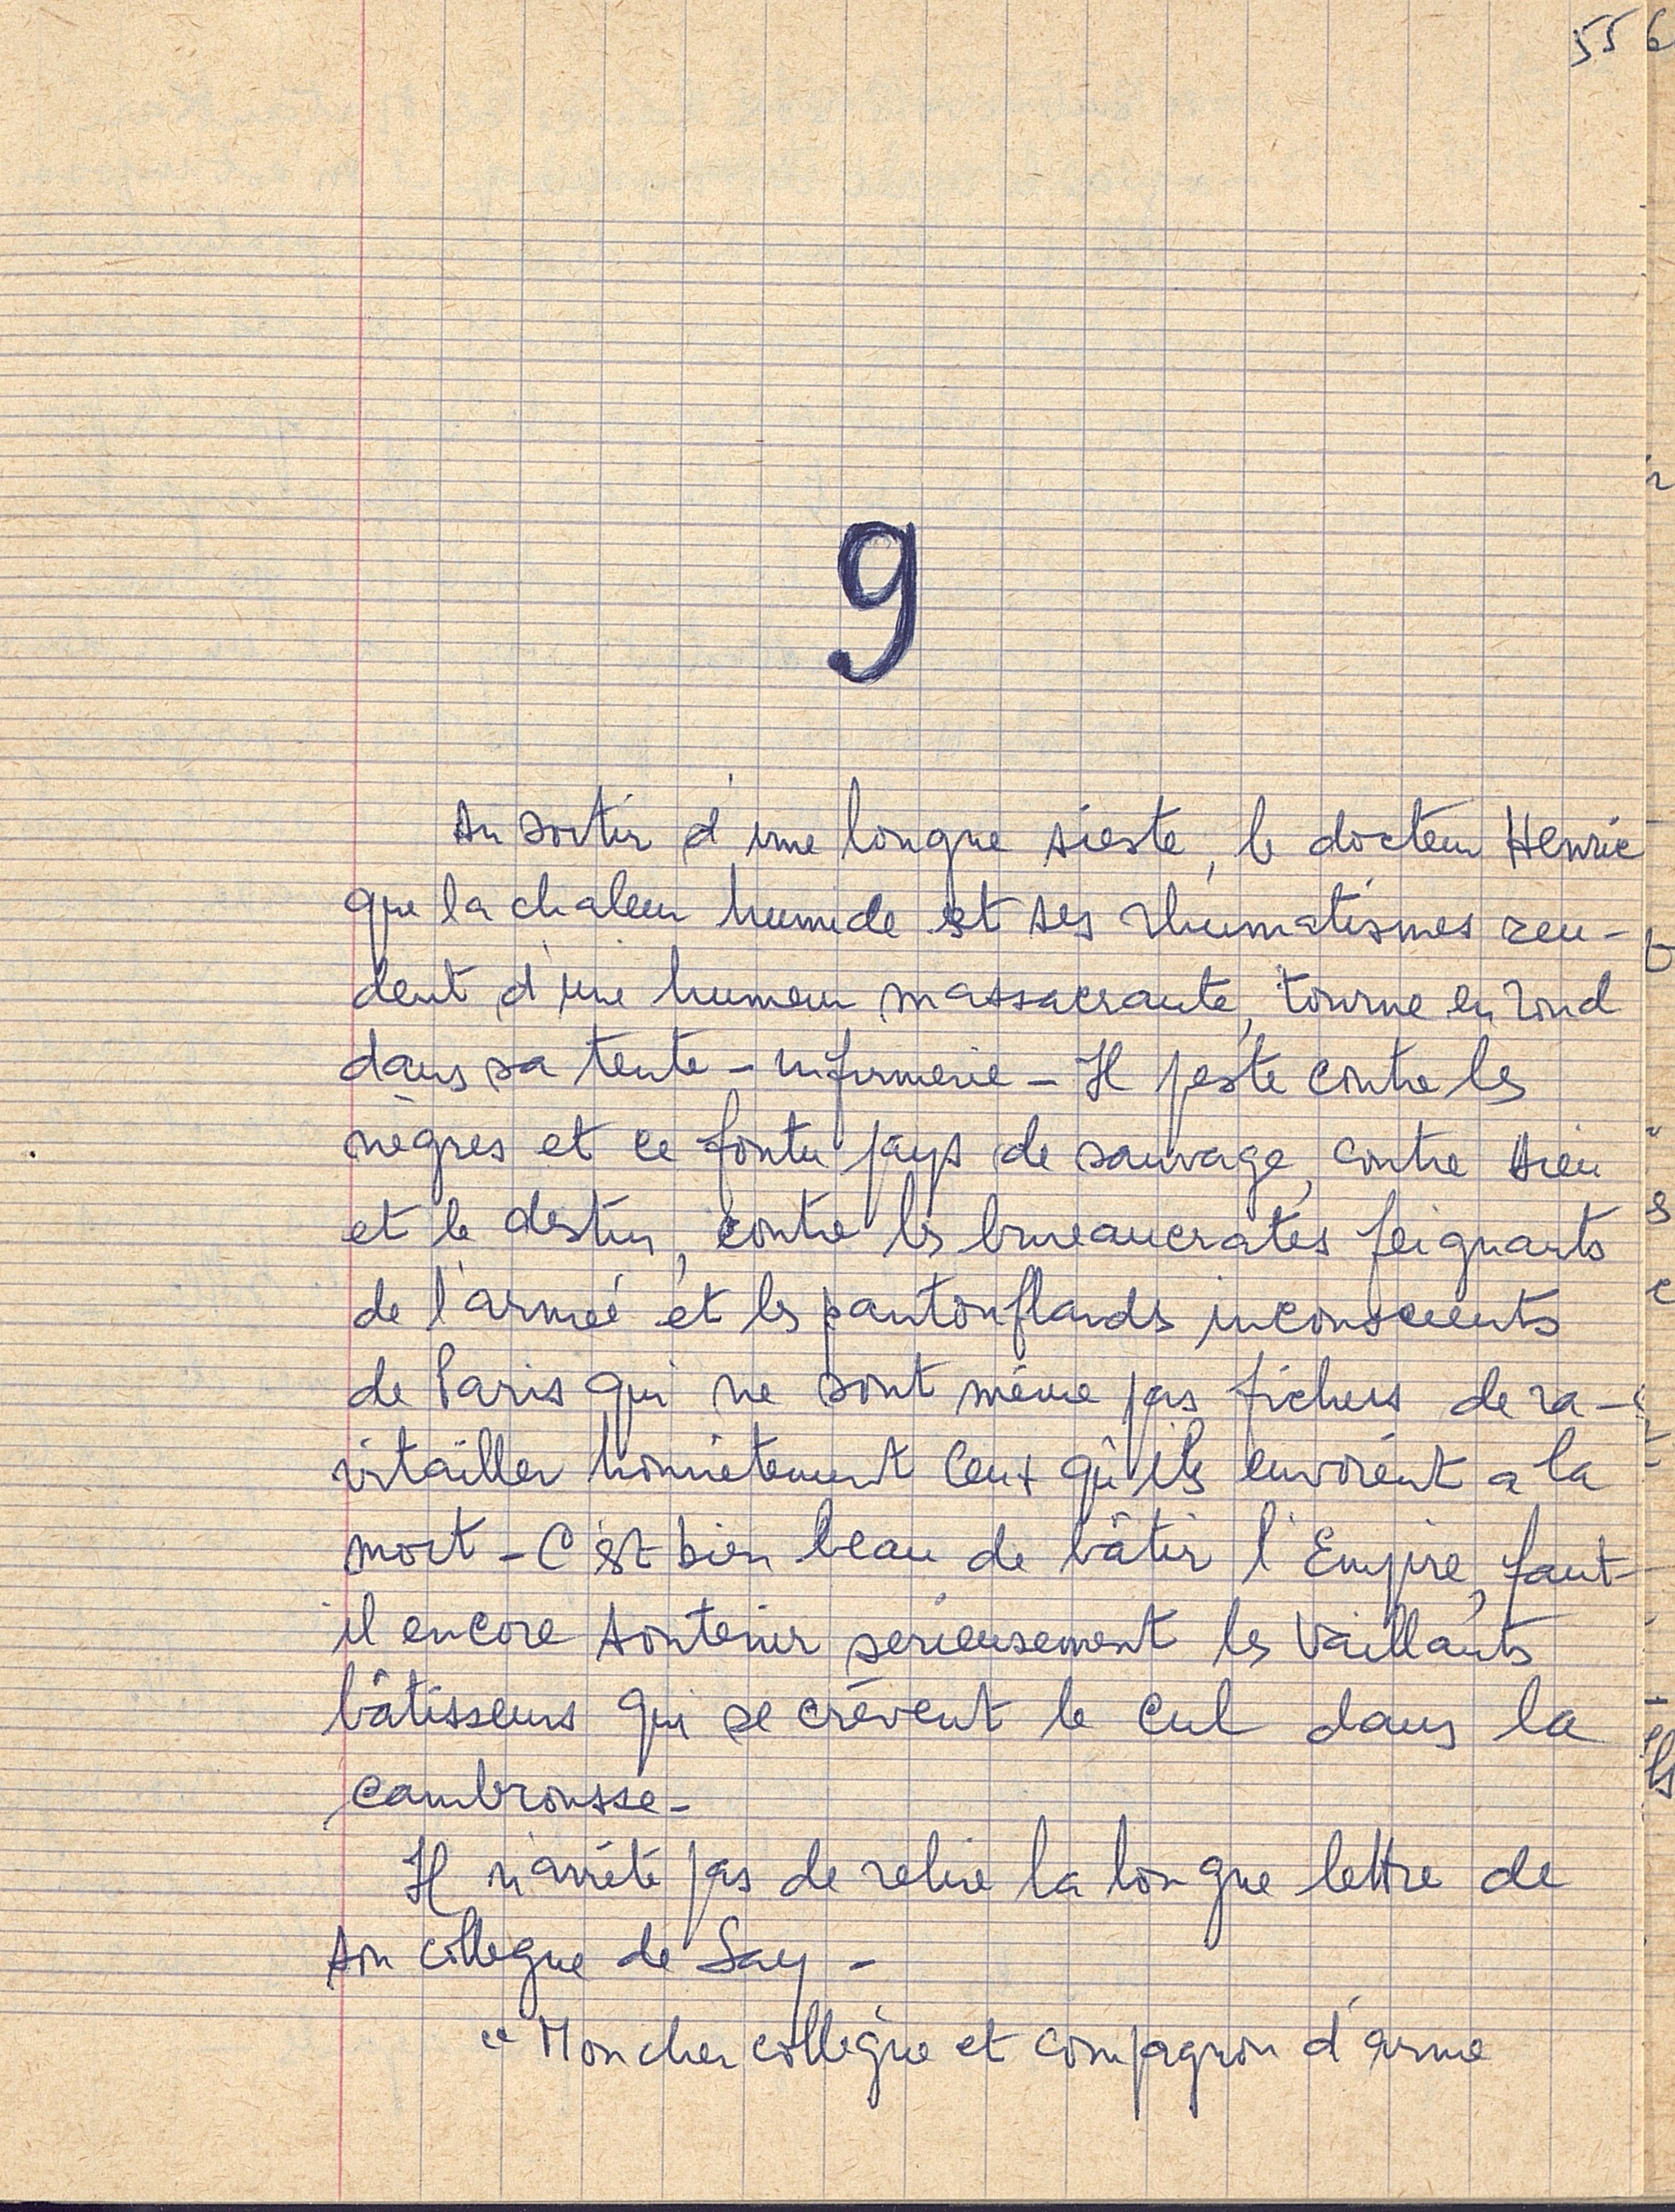 556
9
Au sortir d'une longue sieste, le docteur Henric
que la chaleur humide et ses rhumatismes ren-
dent d'une humeur massacrante, tourne en rond
dans sa tente-infirmerie - Il peste contre les
nègres et ce foutu pays de sauvage, contre Dieu
et le destin, contre les bureaucrates feignants
de l'armée et les pantouflards inconscients
de Paris qui ne sont même pas fichus de ra-
vitailler honnêtement ceux qu'ils envoient à la
mort - C'est bien beau de bâtir l'Empire, faut-
il encore soutenir sérieusement les vaillants
bâtisseurs qui se crèvent le cul dans la
cambrousse -
Il n'arrête pas de relire la longue lettre de
son collègue de Say -
"Mon cher collègue et compagnon d'arme